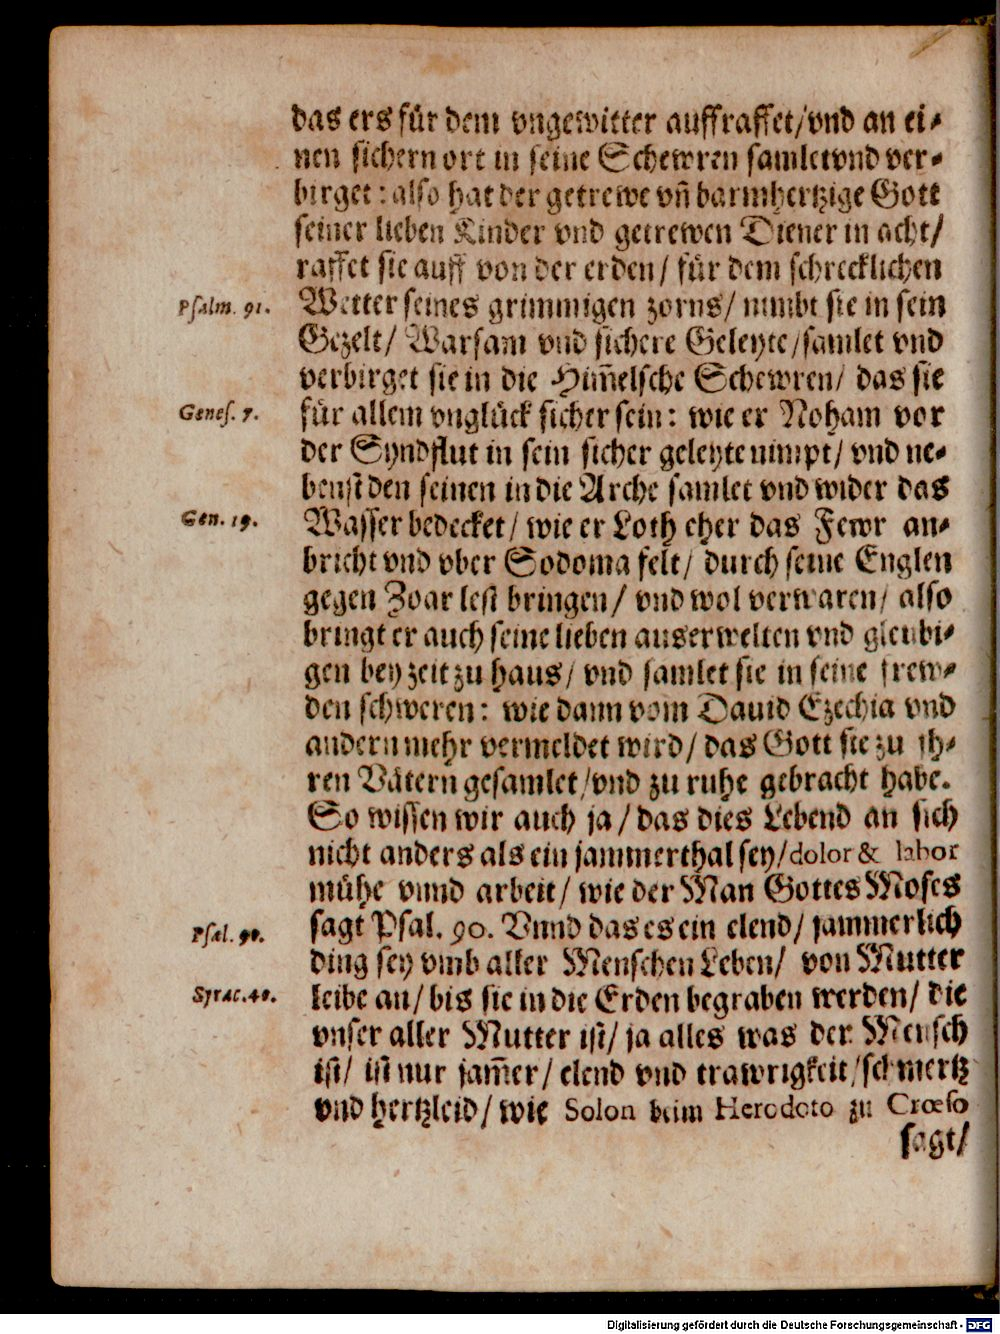 das ers für dem vngewitter auffraffet/vnd an ei⸗
nen sichern ort in seine Schewren samlet vnd ver⸗
birget: also hat der getrewe vn̄ barmhertzige Gott
seiner lieben Kinder vnd getrewen Diener in acht/
raffet sie auff von der erden/ für dem schrecklichen
Psalm. 91. Wetter seines grimmigen zorns/ nimbt sie in sein
Gezelt/ Warsam vnd sichere Geleyte/samlet vnd
verbirget sie in die Him̄elsche Schewren/ das sie
Genes. 7. für allem vnglück sicher sein: wie er Noham vor
der Syndflut in sein sicher geleyte nimpt/ vnd ne⸗
benst den seinen in die Arche samlet vnd wider das
Gen. 19. Wasser bedecket/ wie er Loth eher das Fewr an⸗
bricht vnd vber Sodoma felt/ durch seine Englen
gegen Zoar lest bringen/ vnd wol verwaren/ also
bringt er auch seine lieben auserwelten vnd gleubi⸗
gen bey zeit zu haus/ vnd samlet sie in seine frew⸗
den schweren: wie dann vom Dauid Ezechia vnd
andern mehr vermeldet wird/ das Gott sie zu ih⸗
ren Vätern gesamlet/vnd zu ruhe gebracht habe.
So wissen wir auch ja/ das dies Lebend an sich
nicht anders als ein jammerthal sey/dolor & labor
mühe vnnd arbeit/ wie der Man Gottes Moses
Psal. 90. sagt Psal. 90. Vnnd das es ein elend/ jammerlich
ding sey vmb aller Menschen Leben/ von Mutter
Syrac. 40. leibe an/ bis sie in die Erden begraben werden/ die
vnser aller Mutter ist/ ja alles was der Mensch
ist/ ist nur jam̄er/ elend vnd trawrigkeit/schmertz
vnd hertzleid/ wie Solon beim Herodoto zu Crœso
sagt/
Digitalisierung gefördert durch die Deutsche Forschungsgemeinschaft - DFG